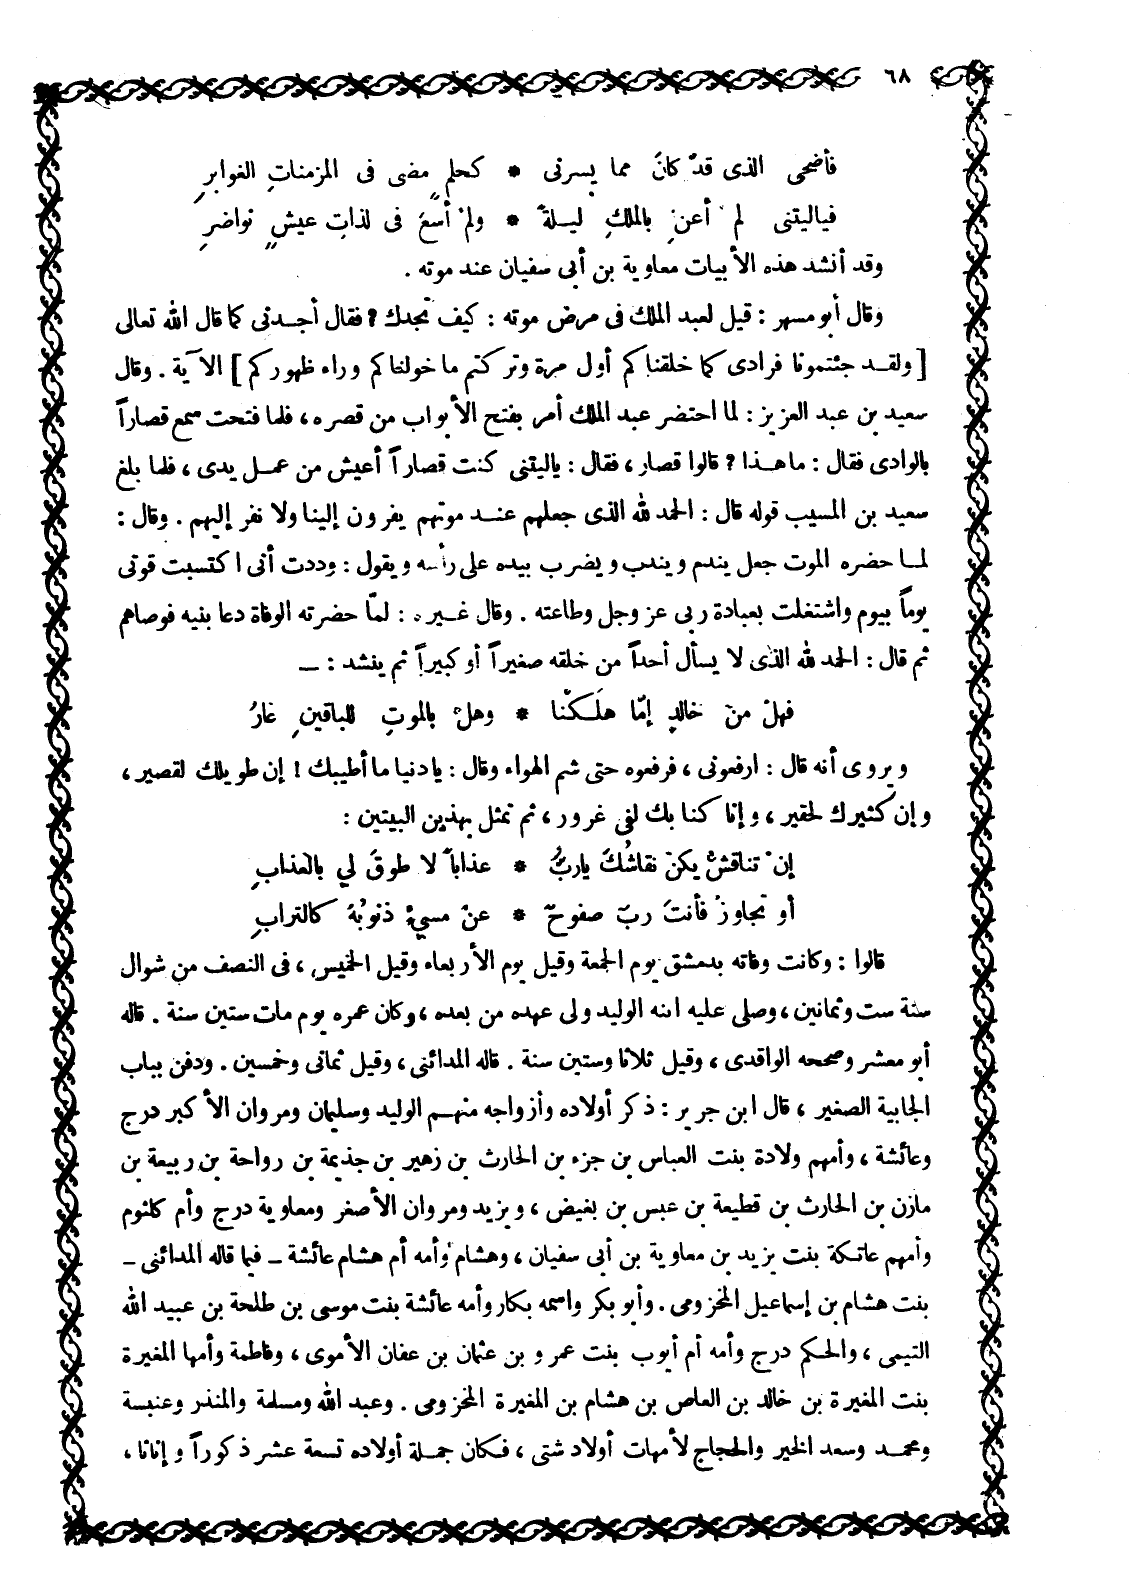 ٦٨
فأضحى الذى قدْ كانَ مما يسرنى * كحلمٍ مضى فى المزمناتِ الغوابرِ
فياليتنى لمْ أعنِ بالملكِ ليلةً * ولمْ أسعَ فى لذاتِ عيشٍ نواضرِ
وقد أنشد هذه الأبيات معاوية بن أبى سفيان عند موته .
وقال أبو مسهر : قيل لعبد الملك فى مرض موته : كيف تجدك ؟ فقال أجدنى كما قال الله تعالى
[ ولقد جئتمونا فرادى كما خلقناكم أول مرة وتركتم ما خولناكم وراء ظهوركم ] الآية . وقال
سعيد بن عبد العزيز : لما احتضر عبد الملك أمر بفتح الأبواب من قصره ، فلما فتحت سمع قصاراً
بالوادى فقال : ما هذا ؟ قالوا قصار ، فقال : ياليتنى كنت قصاراً أعيش من عمل يدى ، فلما بلغ
سعيد بن المسيب قوله قال : الحمد لله الذى جعلهم عند موتهم يفرون إلينا ولا نفر إليهم . وقال :
لما حضره الموت جعل يندم ويندب ويضرب بيده على رأسه ويقول : وددت أنى اكتسبت قوتى
يوماً بيوم واشتغلت بعبادة ربى عز وجل وطاعته . وقال غيره : لمّا حضرته الوفاة دعا بنيه فوصاهم
ثم قال : الحمد لله الذى لا يسأل أحداً من خلقه صغيراً أو كبيراً ثم ينشد : ــ
فهلْ منْ خالدٍ إمّا هَلَكْنا * وهلْ بالموتِ للباقينِ غارُ
ويروى أنه قال : ارفعونى ، فرفعوه حتى شم الهواء وقال : يا دنيا ما أطيبك ! إن طويلك لقصير ،
وإن كثيرك لحقير ، وإنا كنا بك لفى غرور ، ثم تمثل بهذين البيتين :
إنْ تناقشْ يكنْ نقاشُكَ ياربُّ * عذاباً لا طوقَ لي بالعذابِ
أو تجاوزْ فأنتَ ربٌ صفوحٌ * عنْ مسيءٍ ذنوبُهُ كالترابِ
قالوا : وكانت وفاته بدمشق يوم الجمعة وقيل يوم الأربعاء وقيل الخميس ، فى النصف من شوال
سنة ست وثمانين ، وصلى عليه ابنه الوليد ولى عهده من بعده ، وكان عمره يوم مات ستين سنة . قاله
أبو معشر وصححه الواقدى ، وقيل ثلاثا وستين سنة . قاله المدائنى ، وقيل ثمانى وخمسين . ودفن بباب
الجابية الصغير ، قال ابن جرير : ذكر أولاده وأزواجه منهم الوليد وسليمان ومروان الأكبر درج
وعائشة ، وأمهم ولادة بنت العباس بن جزء بن الحارث بن زهير بن جذيمة بن رواحة بن ربيعة بن
مازن بن الحارث بن قطيعة بن عبس بن بغيض ، ويزيد ومروان الأصغر ومعاوية درج وأم كلثوم
وأمهم عاتكة بنت يزيد بن معاوية بن أبى سفيان ، وهشام وأمه أم هشام عائشة ـ فيما قاله المدائنى ـ
بنت هشام بن إسماعيل المخزومى . وأبو بكر واسمه بكار وأمه عائشة بنت موسى بن طلحة بن عبيد الله
التيمى ، والحكم درج وأمه أم أيوب بنت عمرو بن عثمان بن عفان الأموى ، وفاطمة وأمها المغيرة
بنت المغيرة بن خالد بن العاص بن هشام بن المغيرة المخزومى . وعبد الله ومسلمة والمنذر وعنبسة
ومحمد وسعد الخير والحجاج لأمهات أولاد شتى ، فكان جملة أولاده تسعة عشر ذكوراً وإناثا ،